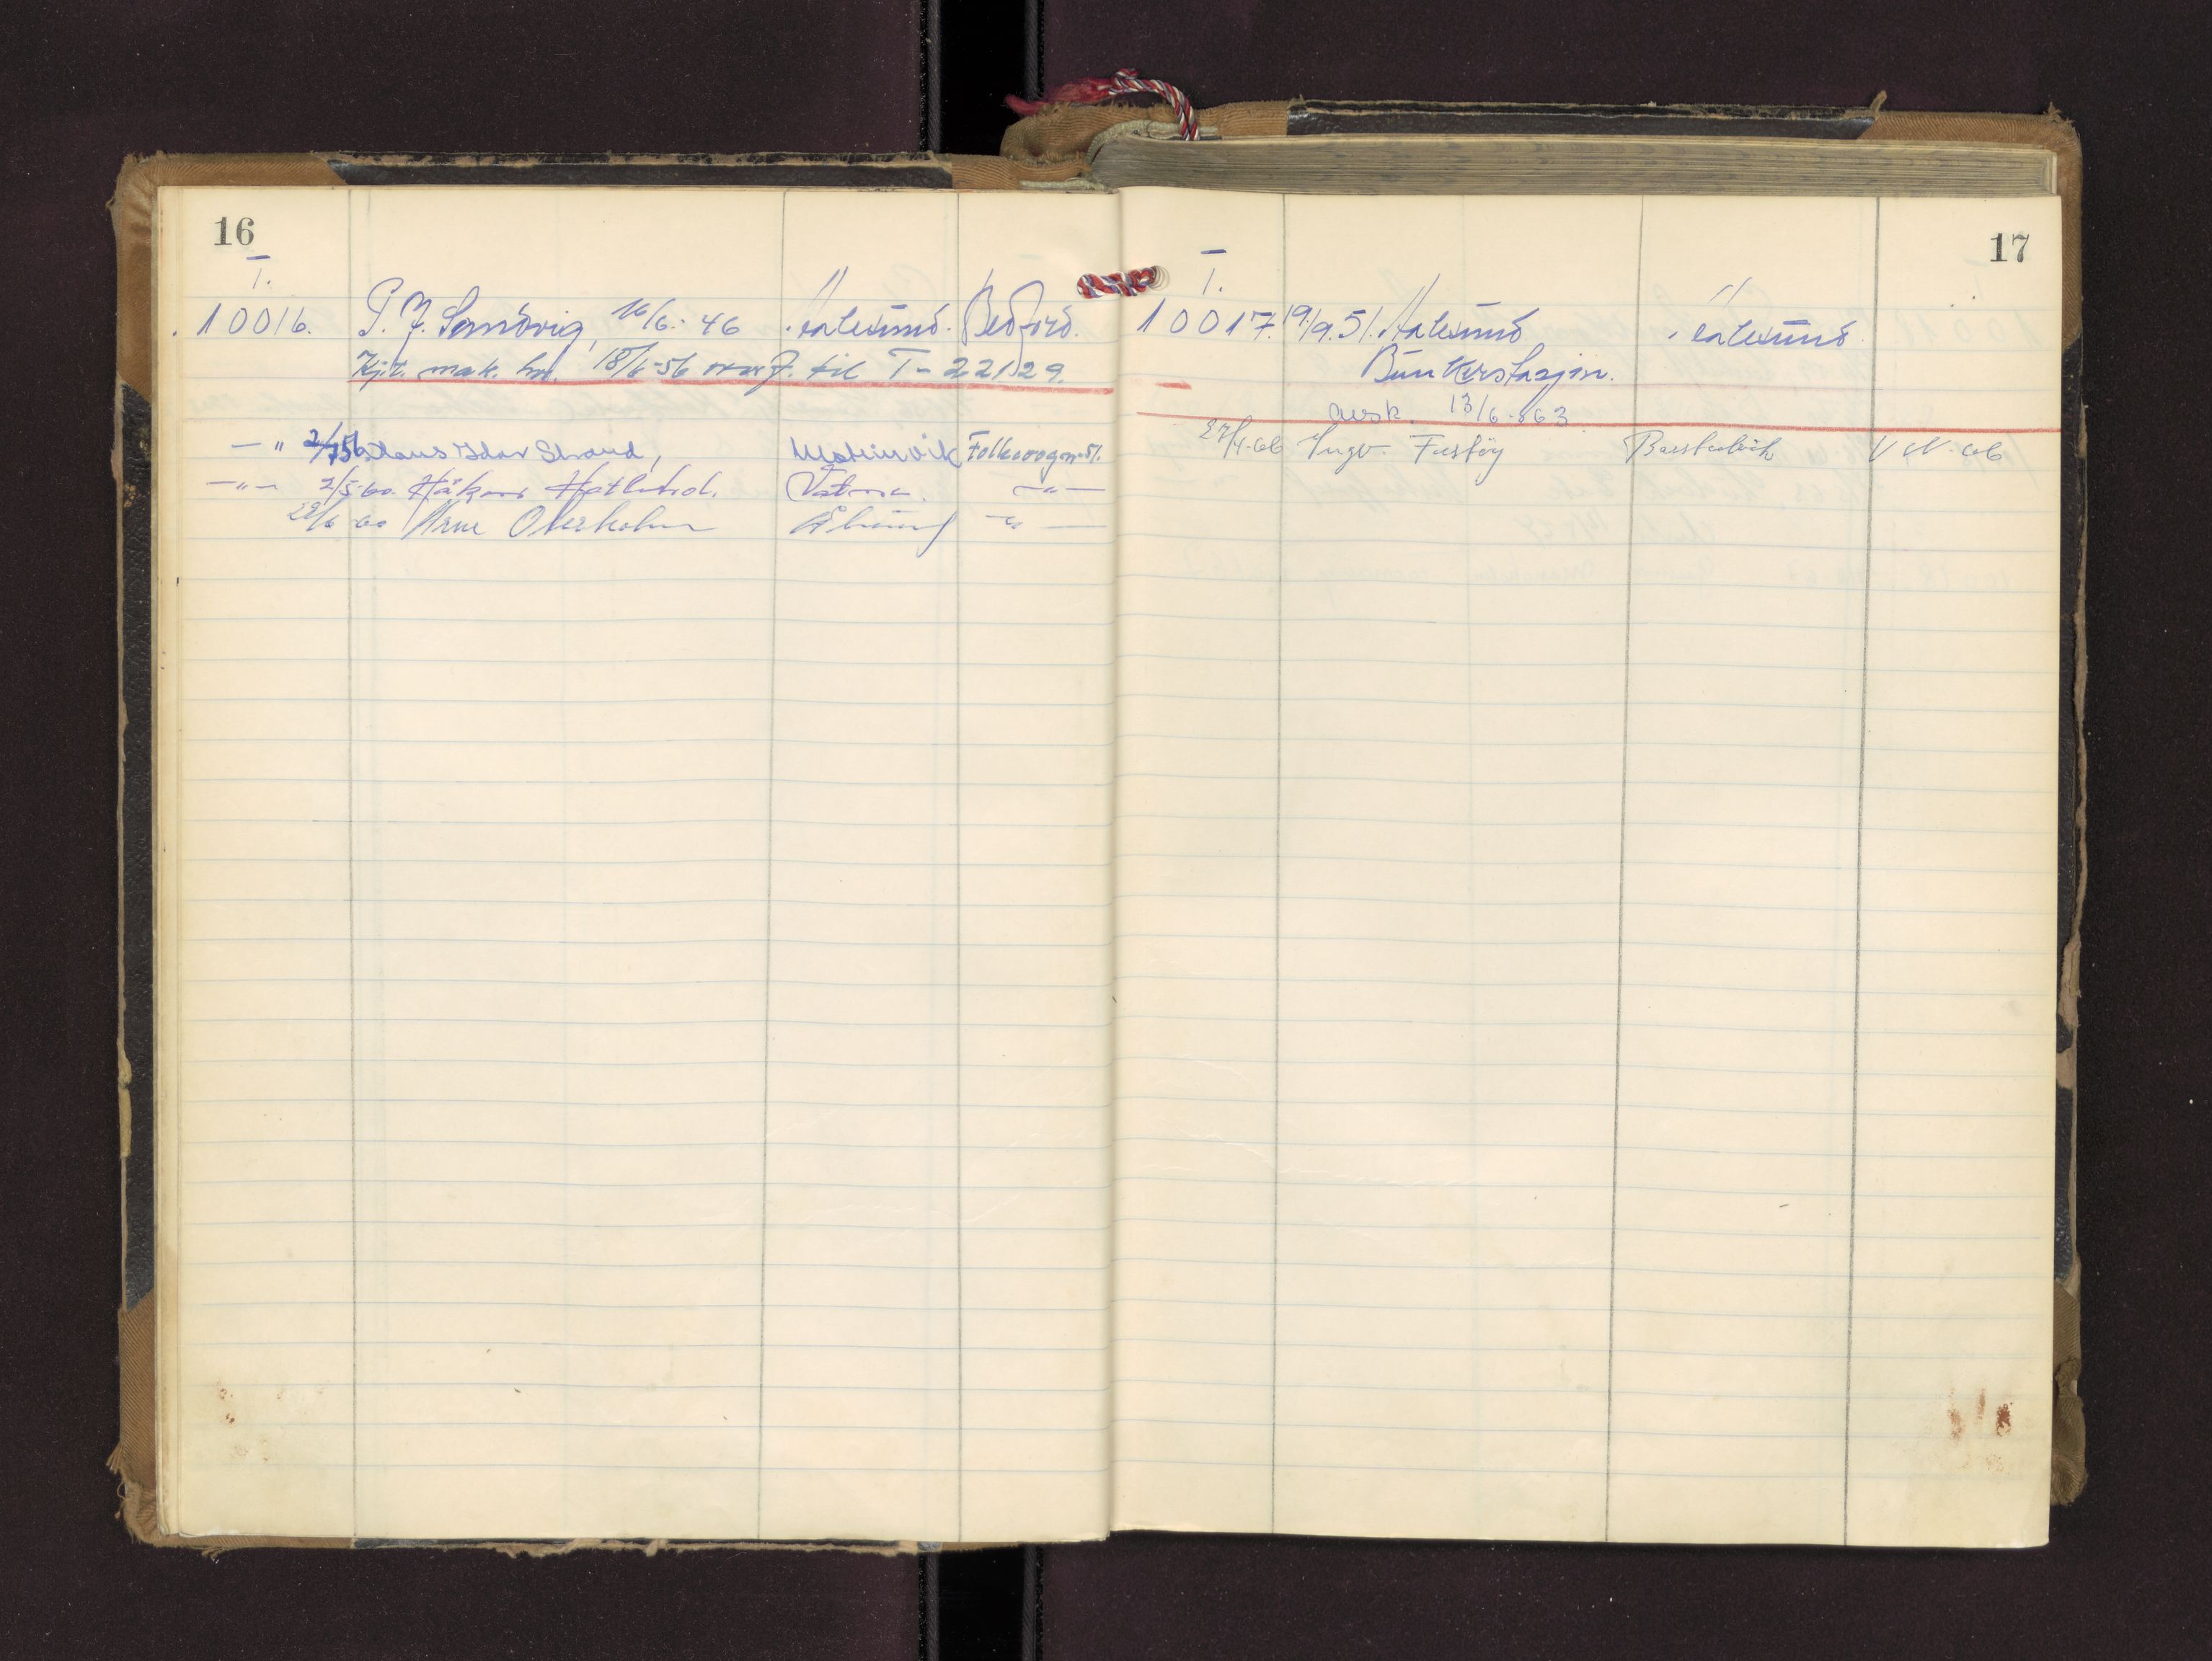 16
T.
10016. P. J. Sandvig, 16/6.-46 Aalesund. Bedford.
Kjt. mrk. hn. 18/6-56 overf. til T-22129.
—"— 2/7 56. Hans Idar Strand, Molnirvik Folkevogn-51.
—"— 2/5-60. Håkon Hatlebrd. Vatne. —"—
22/6-60 Arne Otterholm Ålesund —"—
17
T.
10017. 19/9.51. Aalesund Aalesund
Bunkerstasjon.
avsk. 13/6-63
27/4-66 Ingv. Furtøy VW-66